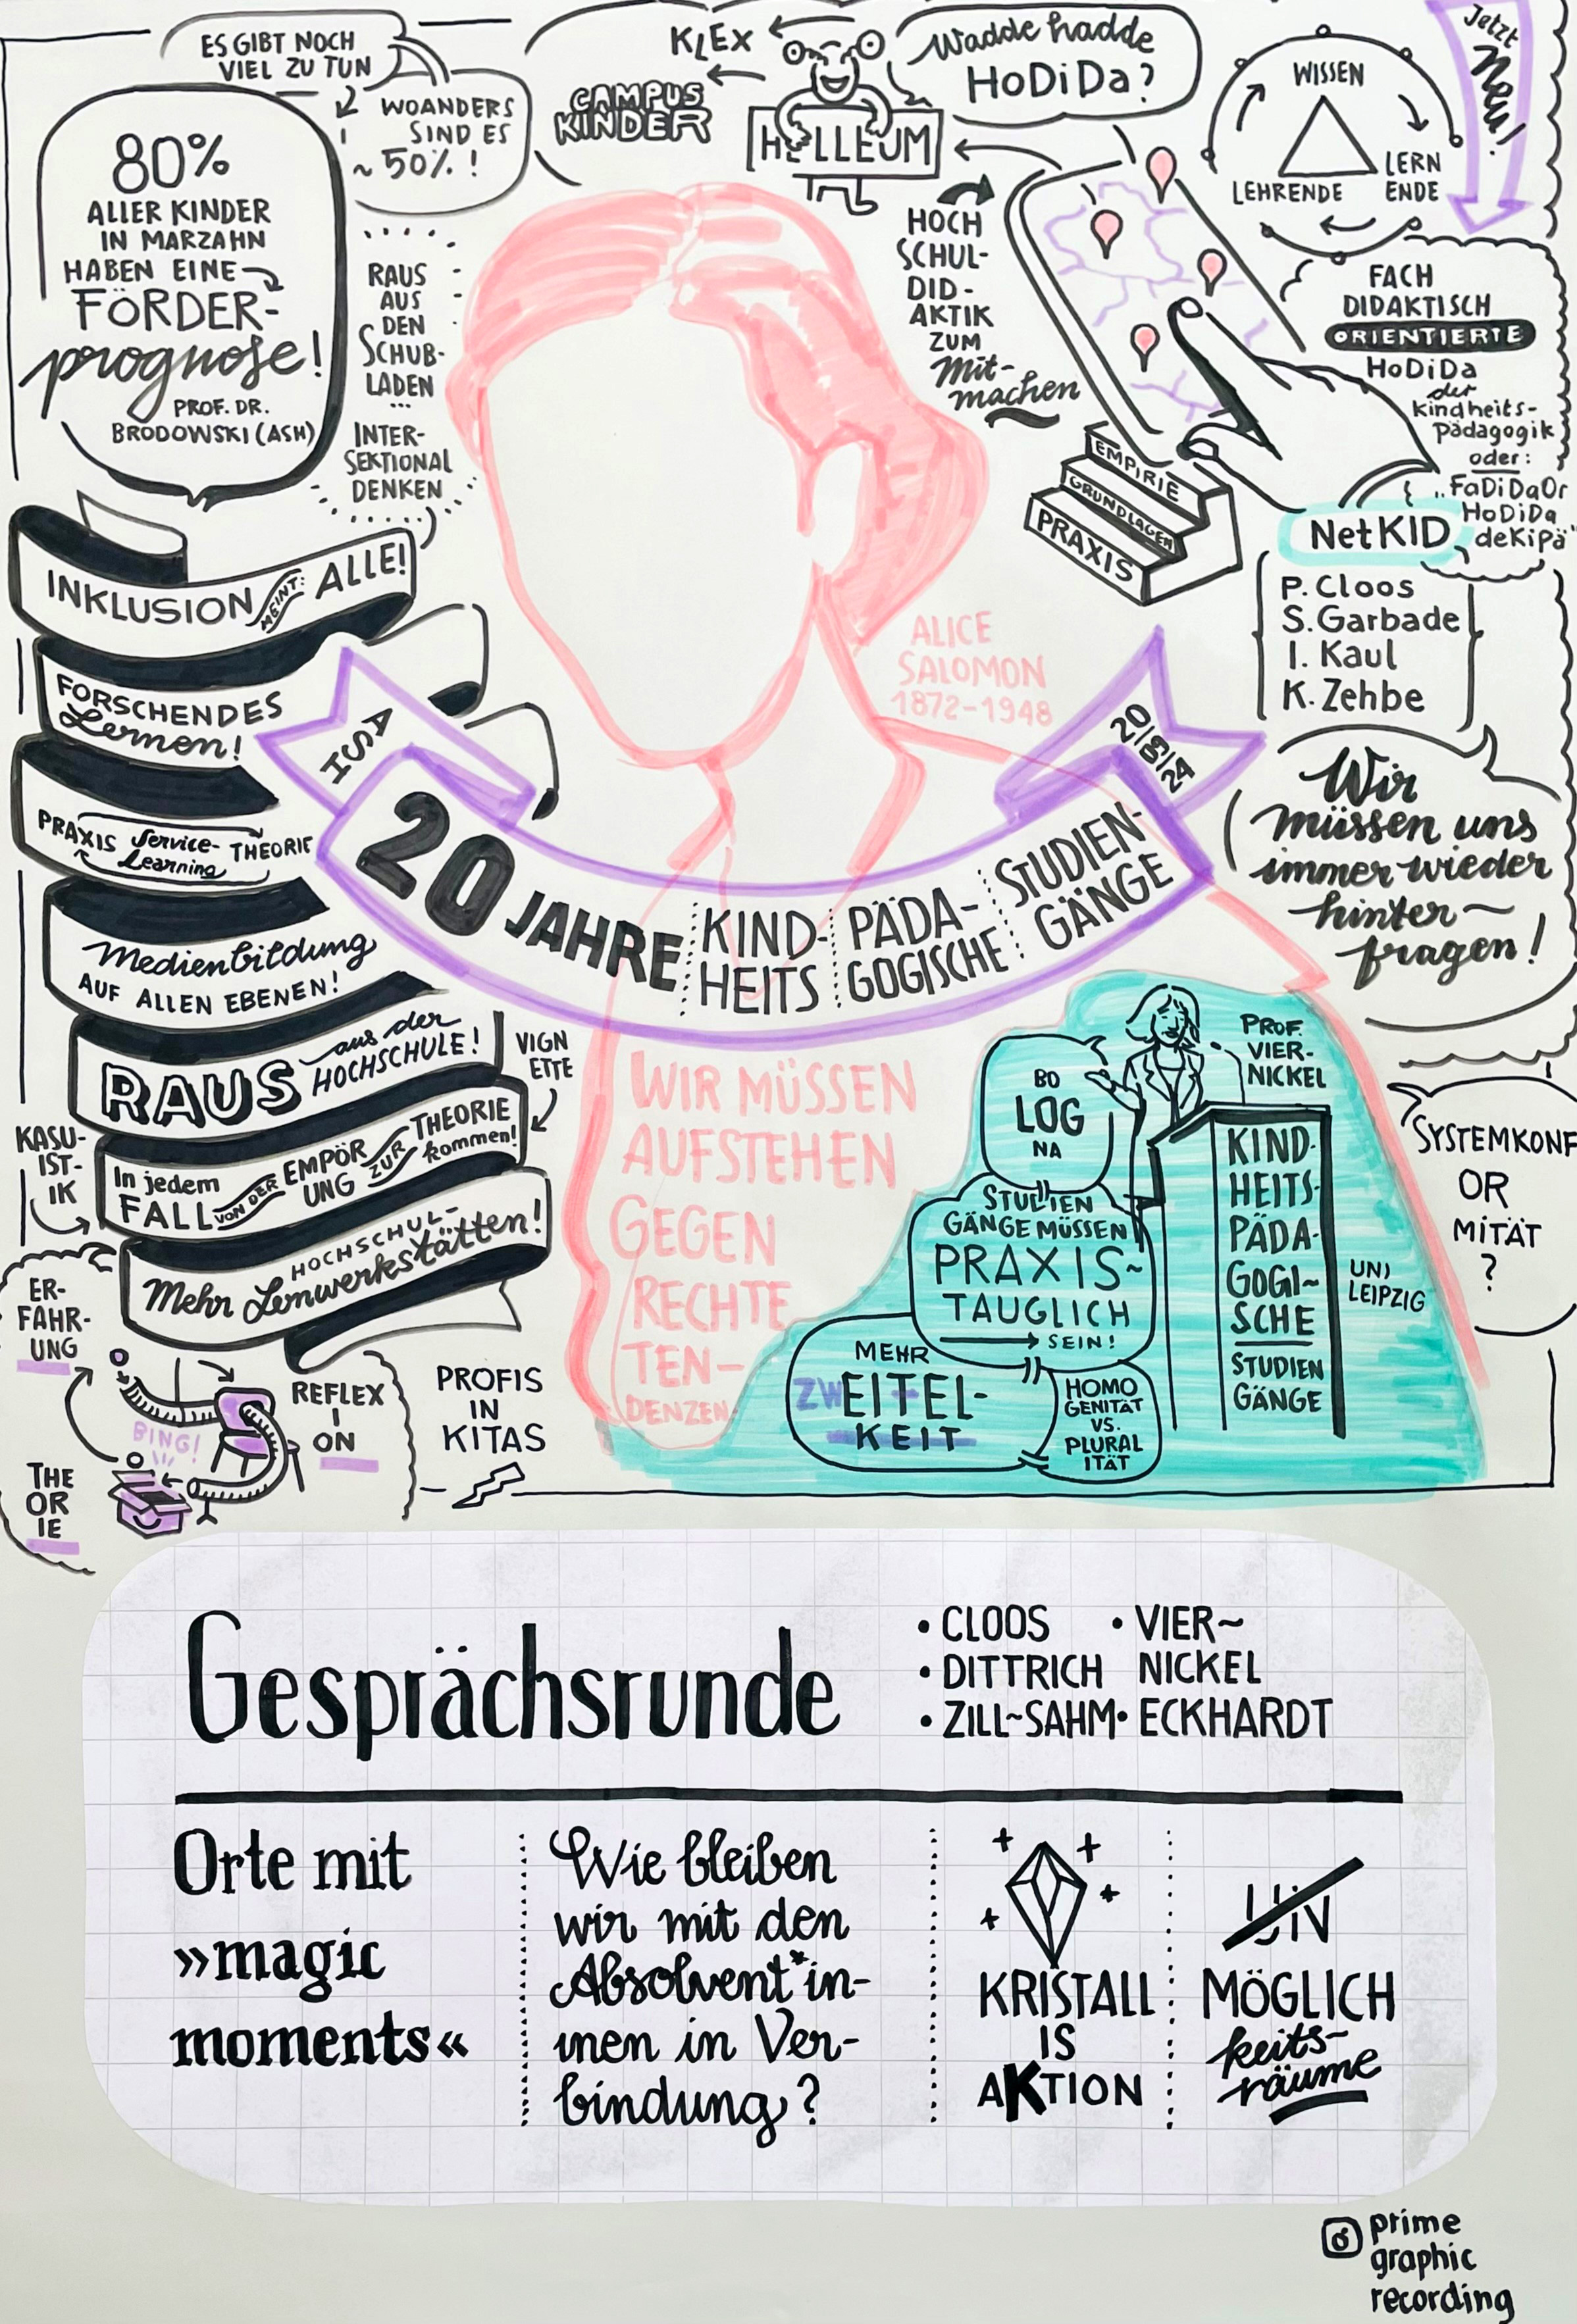 ES GIBT NOCH
VIEL ZU TUN
WOANDERS
SIND ES
~ 50% !
80%
ALLER KINDER
IN MARZAHN
HABEN EINE
FÖRDER-
prognose!
PROF. DR.
BRODOWSKI (ASH)
RAUS
AUS
DEN
SCHUB-
LADEN
...
INTER-
SEKTIONAL
DENKEN
KLEX
CAMPUS
KINDER
HOLLEUM
Wadde hadde
HoDiDa?
HOCH
SCHUL-
DID-
AKTIK
ZUM
Mit-
machen
WISSEN
LEHRENDE
LERN
ENDE
Jetzt
Neu!
FACH
DIDAKTISCH
ORIENTIERTE
HoDiDa
der
Kindheits-
Pädagogik
oder:
„FaDiDaOr
HoDiDa
deKiPä"
EMPIRIE
GRUNDLAGEN
PRAXIS
NetKID
P. Cloos
S. Garbade
I. Kaul
K. Zehbe
INKLUSION MEINT: ALLE!
FORSCHENDES
Lernen!
PRAXIS Service- THEORIE
Learning
Medienbildung
AUF ALLEN EBENEN!
RAUS aus der
HOCHSCHULE!
VIGN
ETTE
KASU-
IST-
IK
In jedem
FALL VON DER EMPÖR
UNG ZUR THEORIE
kommen!
HOCHSCHUL-
Mehr Lernwerkstätten!
ALICE
SALOMON
1872-1948
ASH
20 JAHRE KIND-
HEITS PÄDA-
GOGISCHE STUDIEN-
GÄNGE
20/09/24
Wir
müssen uns
immer wieder
hinter-
fragen!
WIR MÜSSEN
AUFSTEHEN
GEGEN
RECHTE
TEN-
DENZEN
BO
LOG
NA
PROF.
VIER-
NICKEL
STUDIEN
GÄNGE MÜSSEN
PRAXIS~
TAUGLICH
SEIN!
MEHR
ZWEITEL-
KEIT
HOMO
GENITÄT
VS.
PLURAL
ITÄT
KIND-
HEITS-
PÄDA-
GOGI~
SCHE
STUDIEN
GÄNGE
UNI
LEIPZIG
SYSTEMKONF
OR
MITÄT
?
ER-
FAHR-
UNG
REFLEX
I
ON
BING!
THE
OR
IE
PROFIS
IN
KITAS
Gesprächsrunde
• CLOOS
• DITTRICH
• ZILL~SAHM
• VIER~
NICKEL
• ECKHARDT
Orte mit
»magic
moments«
Wie bleiben
wir mit den
Absolvent*in-
nen in Ver-
bindung?
KRISTALL
IS
AKTION
UN
MÖGLICH
keits-
räume
prime
graphic
recording